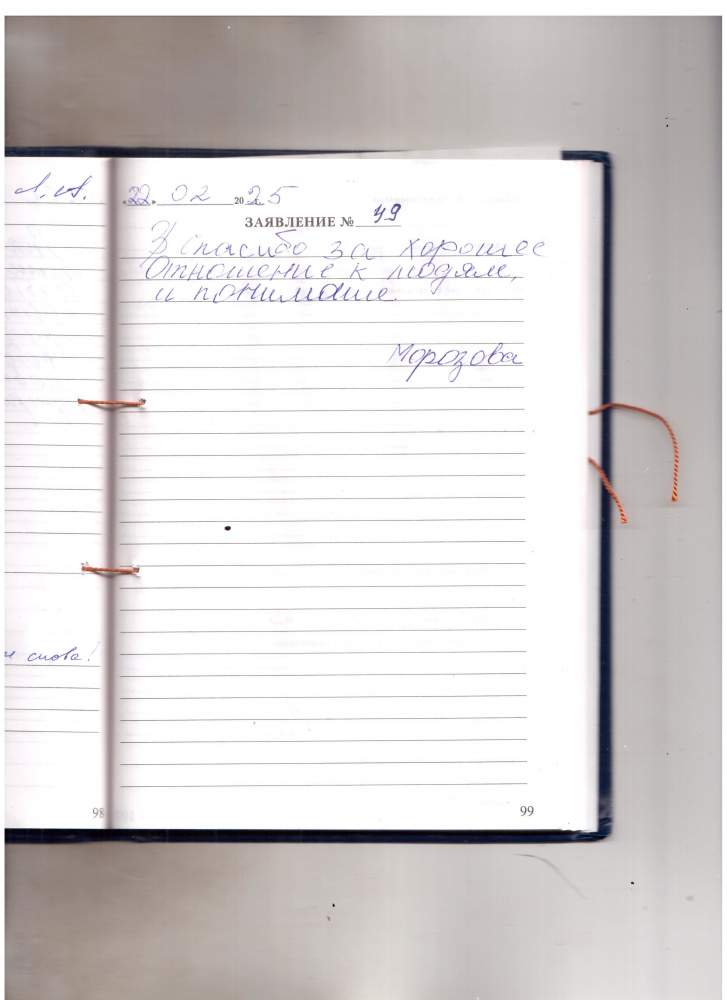 Л.А.
«22» 02 2025
ЗАЯВЛЕНИЕ № 49
Спасибо за хорошее
отношение к людям,
и понимание.
Морозова
слова!
98
99